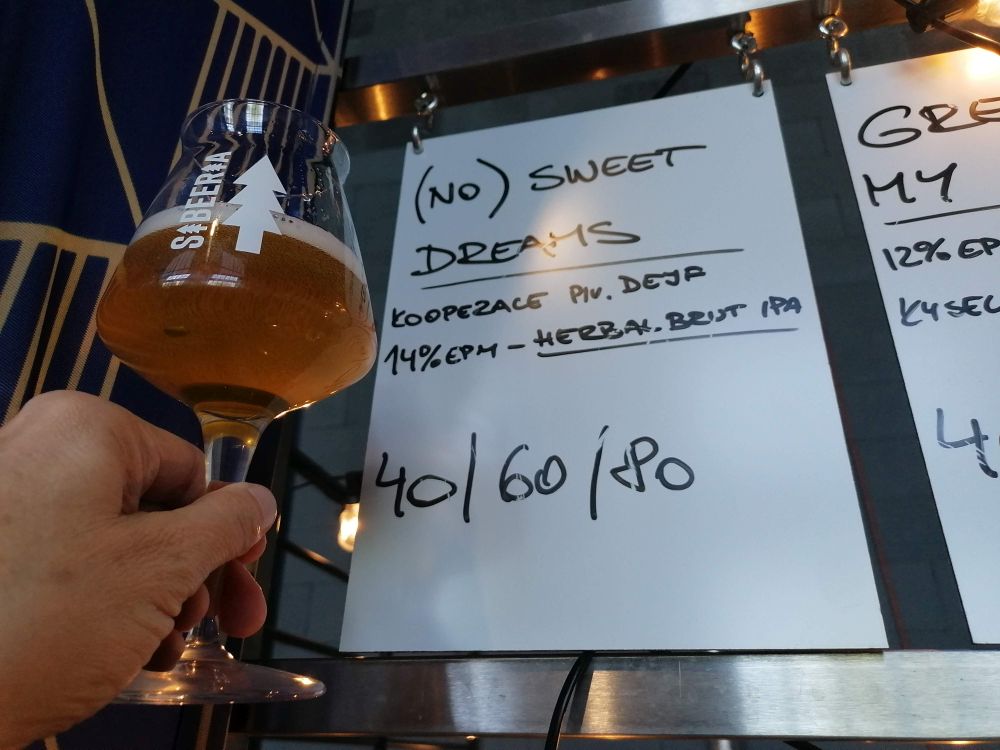 SIBEERIA
(NO) SWEET
DREAMS
KOOPERACE PIV. DEJF
14% EPM - HERBAL BRUT IPA
40/60/80
GRE
MY
12% EP
KYSEL